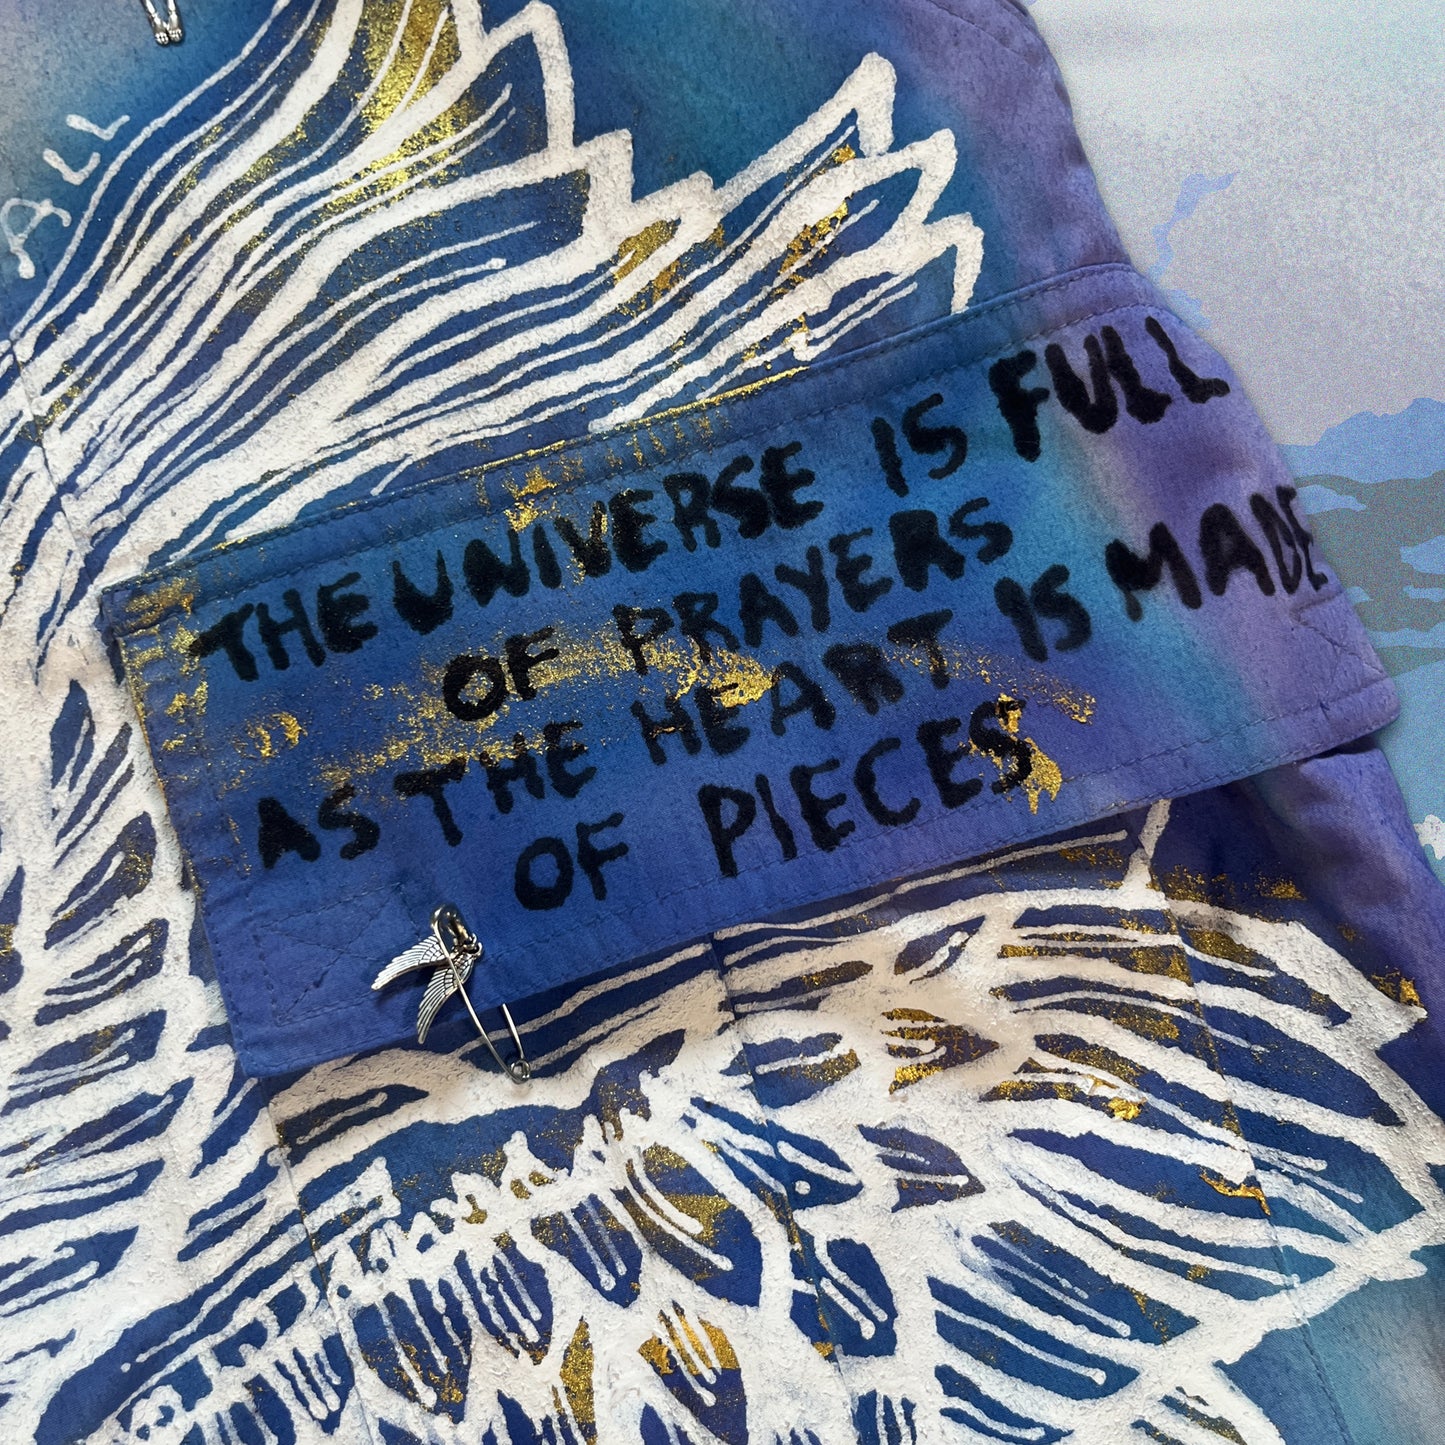 ALL
THE UNIVERSE IS FULL
OF PRAYERS
AS THE HEART IS MADE
OF PIECES